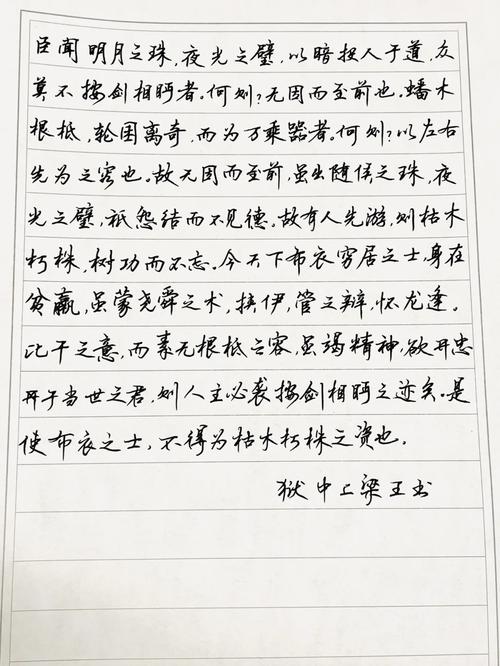 臣闻明月之珠,夜光之璧,以暗投人于道,众
莫不按剑相眄者。何则?无因而至前也。蟠木
根柢,轮囷离奇,而为万乘器者。何则?以左右
先为之容也。故无因而至前,虽出随侯之珠,夜
光之璧,祇怨结而不见德。故有人先游,则枯木
朽株,树功而不忘。今天下布衣穷居之士,身在
贫羸,虽蒙尧舜之术,挟伊,管之辩,怀龙逢。
比干之意,而素无根柢之容,虽竭精神,欲开忠
于当世之君,则人主必袭按剑相眄之迹矣。是
使布衣之士,不得为枯木朽株之资也。
狱中上梁王书